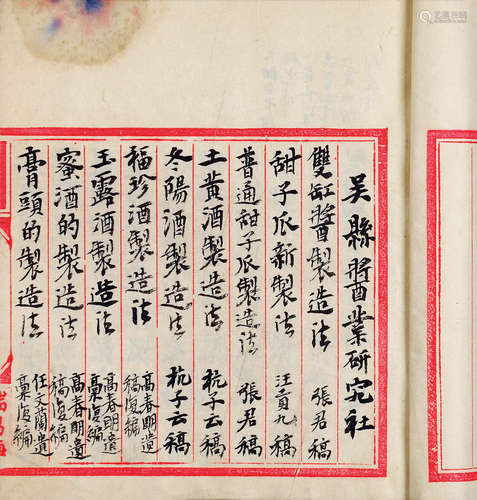 吴縣醬業研究社
雙缸醬製造法 張君稿
甜子瓜新製法 汪貢九稿
普通甜子瓜製造法 張君稿
土黄酒製造法 杭子云稿
冬陽酒製造法 杭子云稿
福珍酒製造法 高春明遺稿復編
玉露酒製造法 高春明遺稾復編
蜜酒的製造法 高春明遺稿復編
膏頭的製造法 任文蘭遺稾復編